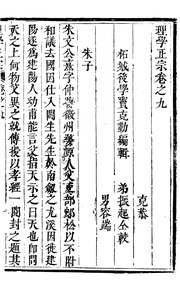 理學正宗卷之九
柘城後學竇克勤編輯
克恭
弟振起仝較
男容端
朱子
朱文公熹字仲晦徽州婺源人父韋齋郎松以不附
和議去國因仕入閩生先生於南劍之尤溪因徙建
陽遂為建陽人幼甫能言父指天示之曰天也即問
天之上何物父異之就傅授以孝經一閱封之題其